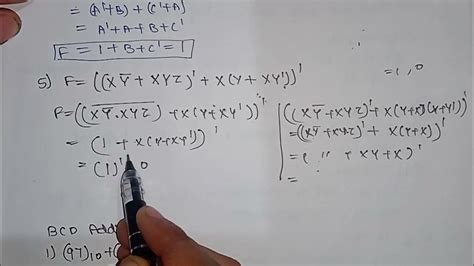 = (A'+B) + (C'+A)
= A'+A+B+C'
F = 1+B+C' = 1
5) F = ((XY̅ + XYZ)' + X(Y+XY'))'
F = ((X̅Y̅.XYZ) + X(Y+XY'))'
= (1 + X(Y+XY'))'
= (1)' 0
= 1, 0
((XY+XYZ)' + X(Y+X)(Y+Y'))'
= ((XY+XYZ)' + X(Y+X))'
= ( " + XY+X)'
=
BCD Add
1) (97)10 + (